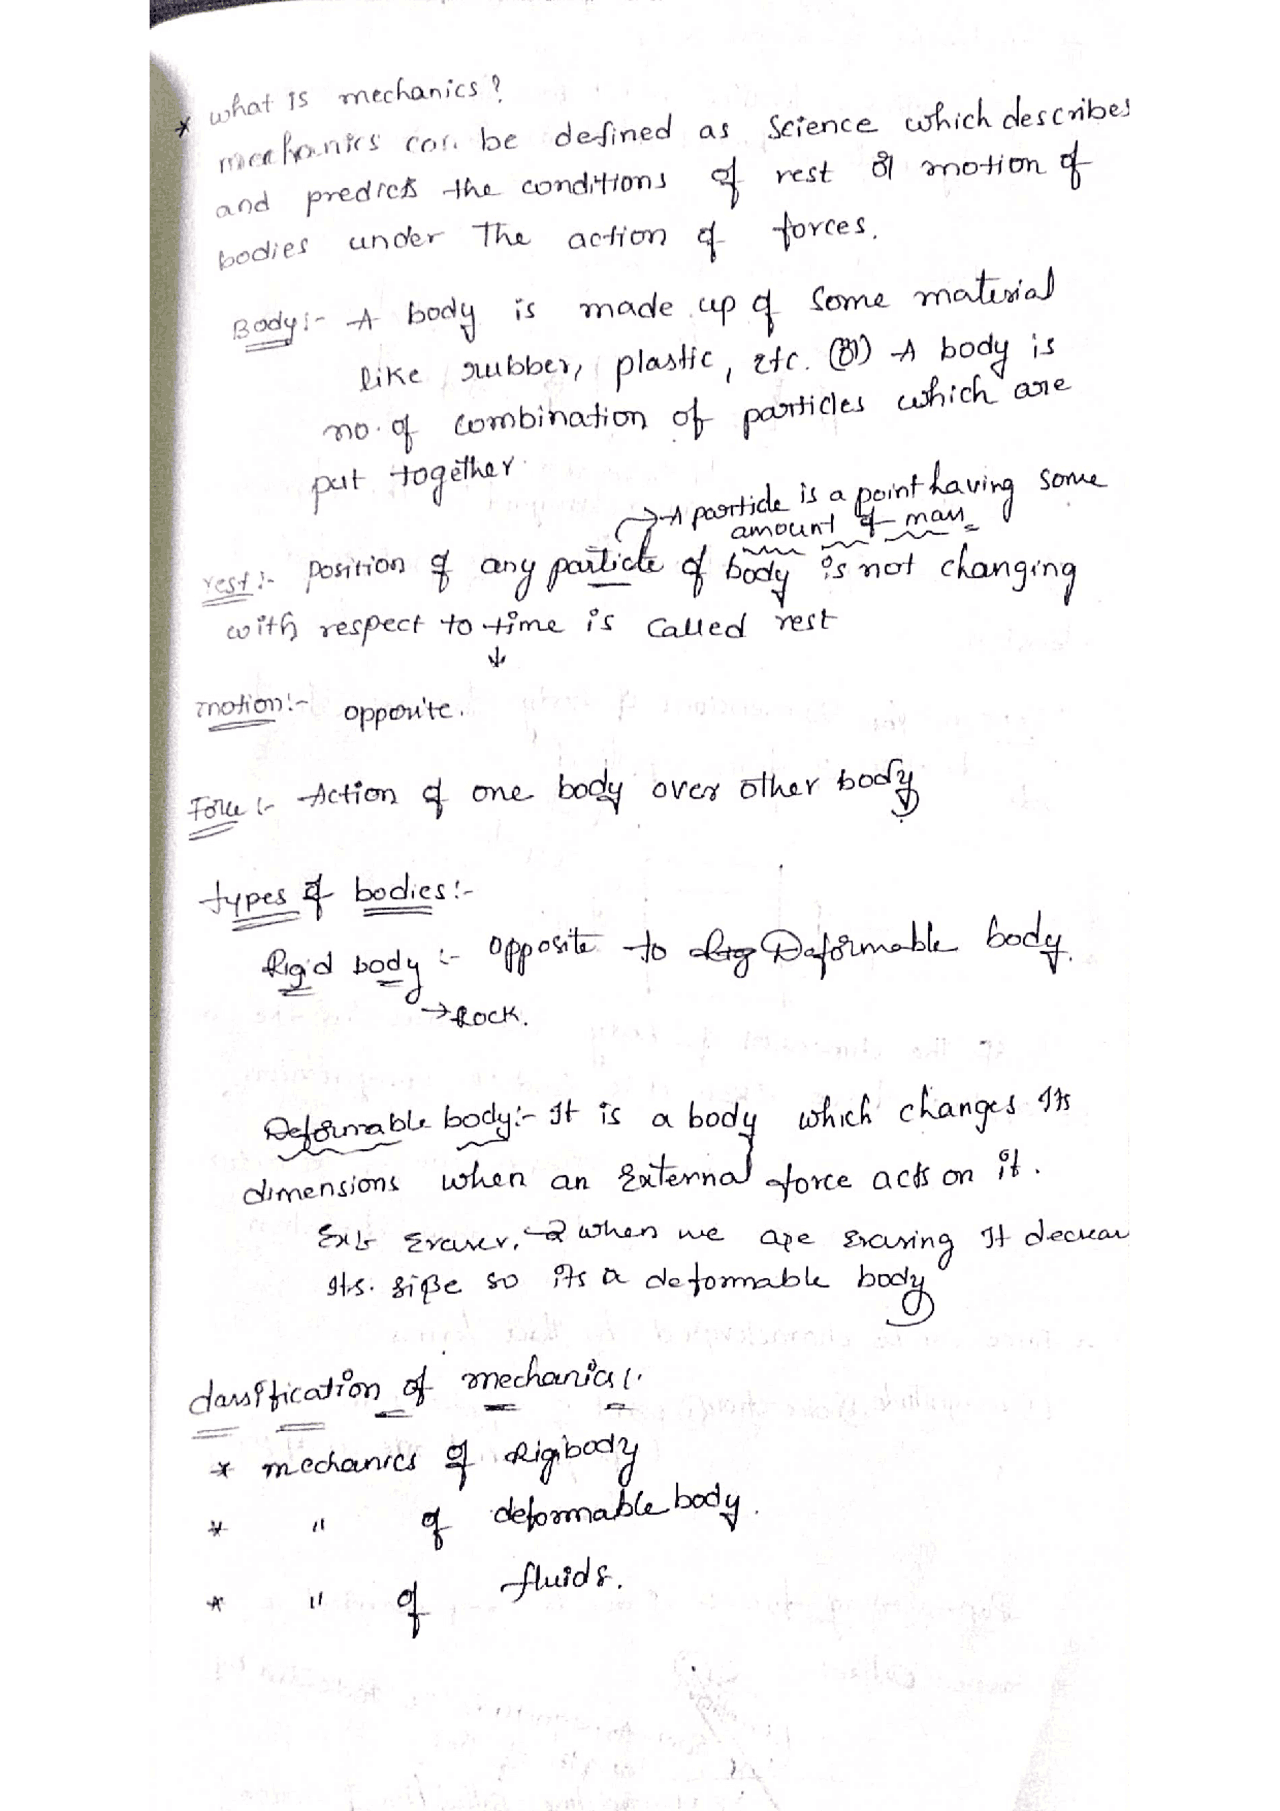 * what is mechanics?
mechanics can be defined as science which describes
and predicts the conditions of rest or motion of
bodies under The action of forces.
Body:- A body is made up of some material
like rubber, plastic, etc. (or) A body is
no. of combination of particles which are
put together.
→ A particle is a point having some
amount of mass
rest:- Position of any particle of body is not changing
with respect to time is called rest
↓
motion:- opposite.
Force:- Action of one body over other body
types of bodies:-
Rigid body:- opposite to Rig Deformable body.
→ Rock.
Deformable body:- It is a body which changes Its
dimensions when an External force acts on it.
Ex:- Eraser, → when we are Erasing It decreas
Its. size so its a deformable body
classification of mechanics:.
* mechanics of Rigibody
* " of deformable body.
* " of fluids.